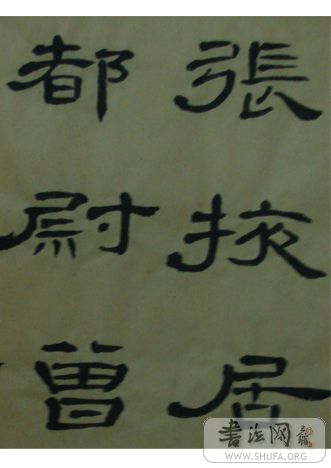 張掖居
都尉曹
書法网
WWW.SHUFA.ORG